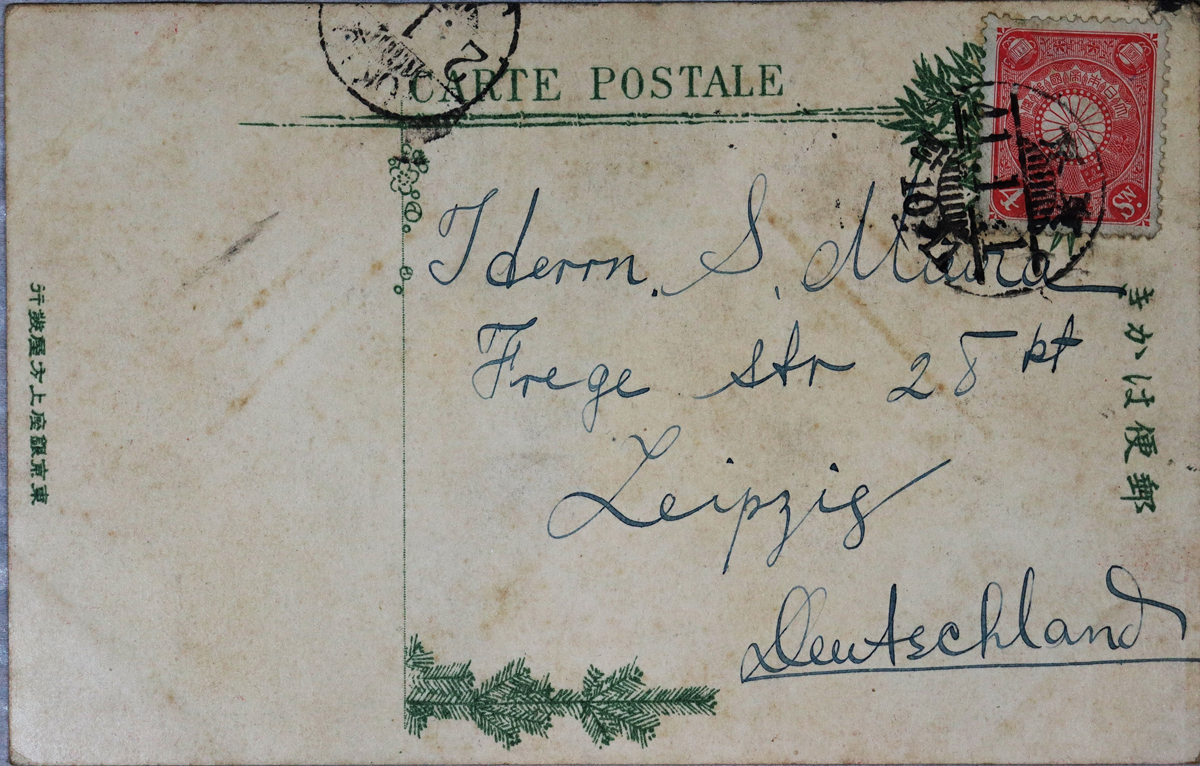 CARTE POSTALE
Herrn. S. Miura
Frege str 28 pt
Leipzig
Deutschland
郵便はかき
東京銀座上方屋發行
4 Sn.